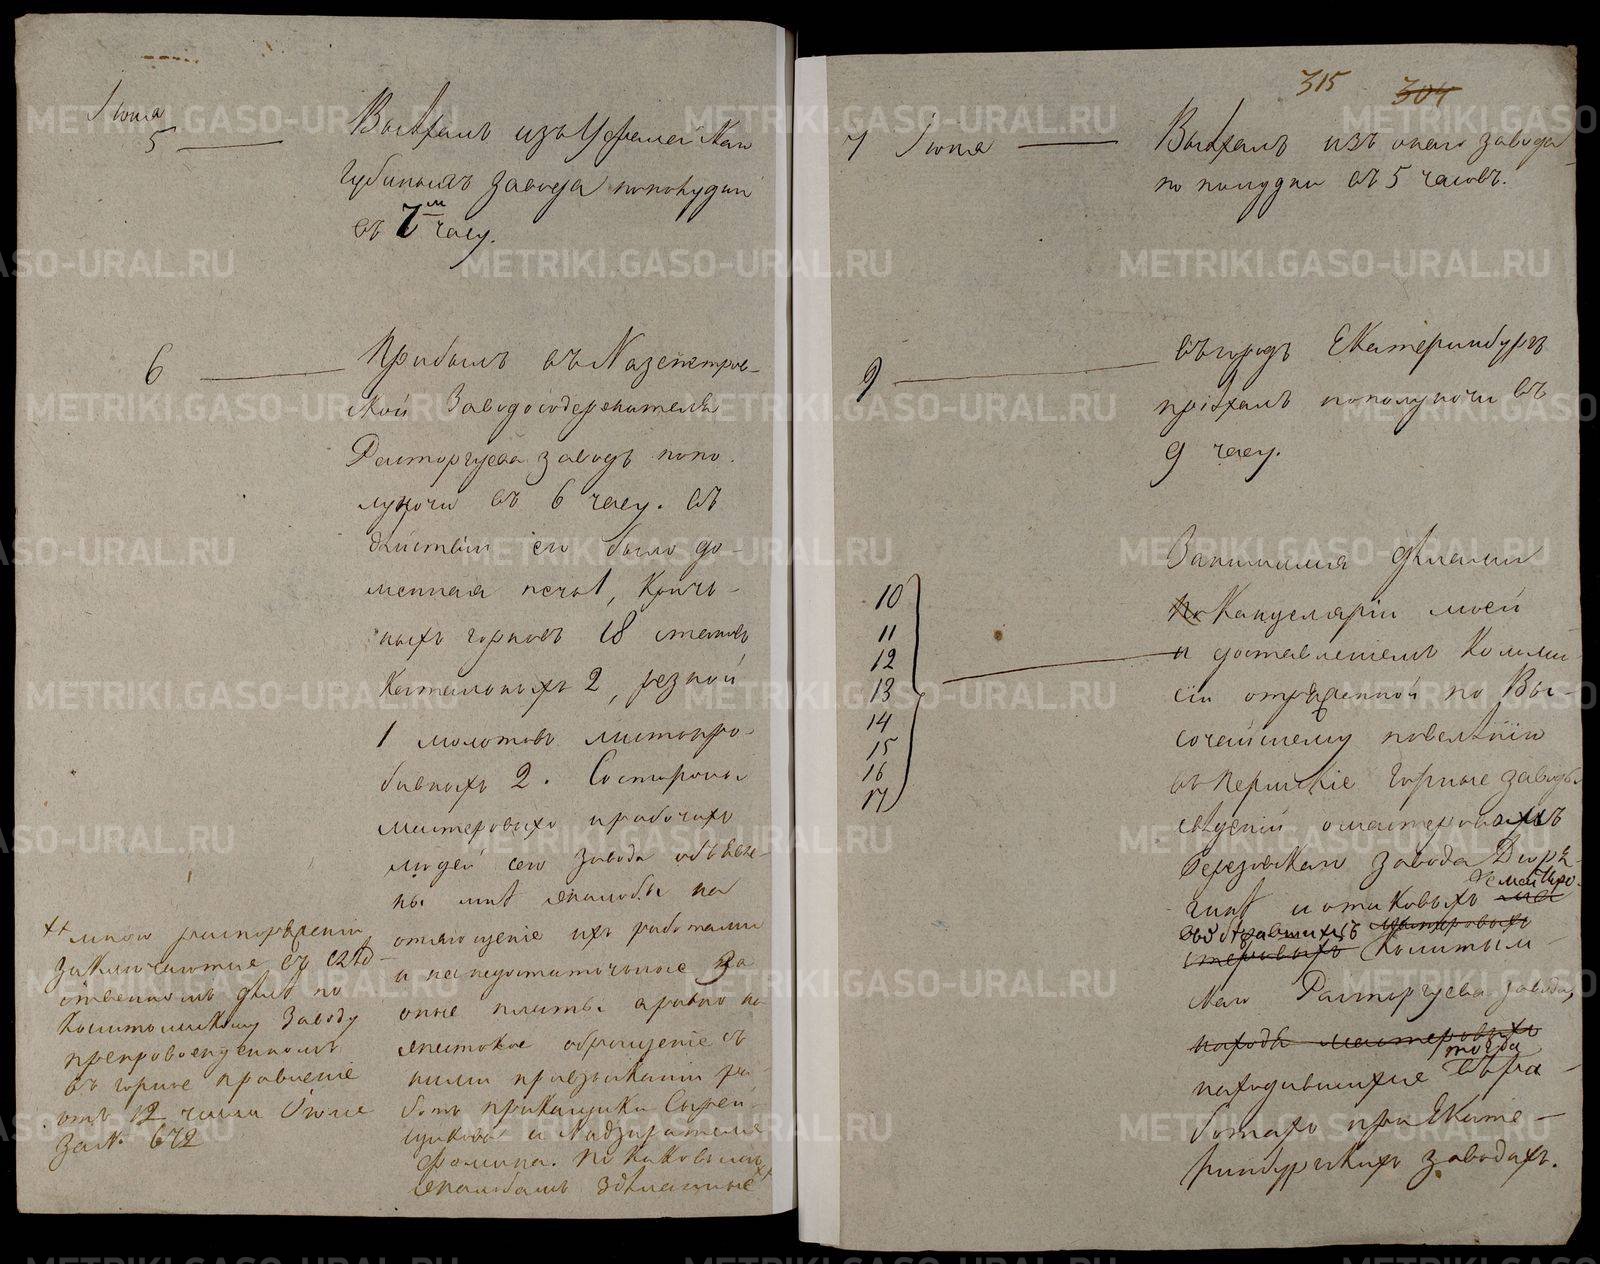 Июня
5
Выѣхалъ изъ Уфалей
Губиныхъ завода пополудни
въ 7м часу.
6
Прибылъ въ Нязепетров-
ской Заводосодержателя
Расторгуева заводъ попо-
луночи въ 6 часу. въ
дѣйствіи его было до-
менная печь 1, Крич-
ныхъ горновъ 18 становъ
Катальныхъ 2, резной
1 молотовъ листопро-
бивныхъ 2. Состороны
мастеровыхъ и рабочихъ
людей сего завода объявле-
ны мнѣ жалобы на
отягощеніе ихъ работами
и на недостаточные За
оные платы а равно на
жестокое обращеніе съ
ними при взысканіи ра-
ботъ прикащика Сырей-
щикова и Надзирателя
Фомина. По каковымъ
жалобамъ зделанные
мною распоряженіи
заключаются въ слѣд-
ственномъ дѣлѣ по
Кыштымскому Заводу
препровожденномъ
въ горное правленіе
отъ 12 числа Июня
за №. 672
315 304
7 Июня
Выѣхалъ изъ онаго завода
по полудни въ 5 часовъ.
9
въ городъ Екатеринбургъ
пріѣхалъ пополуночи въ
9 часу.
10
11
12
13
14
15
16
17
Занимался дѣлами
по Канцеляріи моей
и доставленіемъ Комми-
сіи отряженной по Вы-
сочайшему повелѣнію
въ Пермскіе горные заводы
свѣденій о мастеровыхъ
Березовскаго завода
и отаковыхъ
Кыштым-
скаго Расторгуева завода,
народа мастеровыхъ
тогда
находившихся въ ра-
ботахъ при Екате-
ринбургскихъ заводахъ.